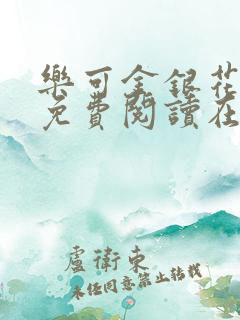 樂可金銀花
免費閱讀在
盧衛東
未任同意禁止转载